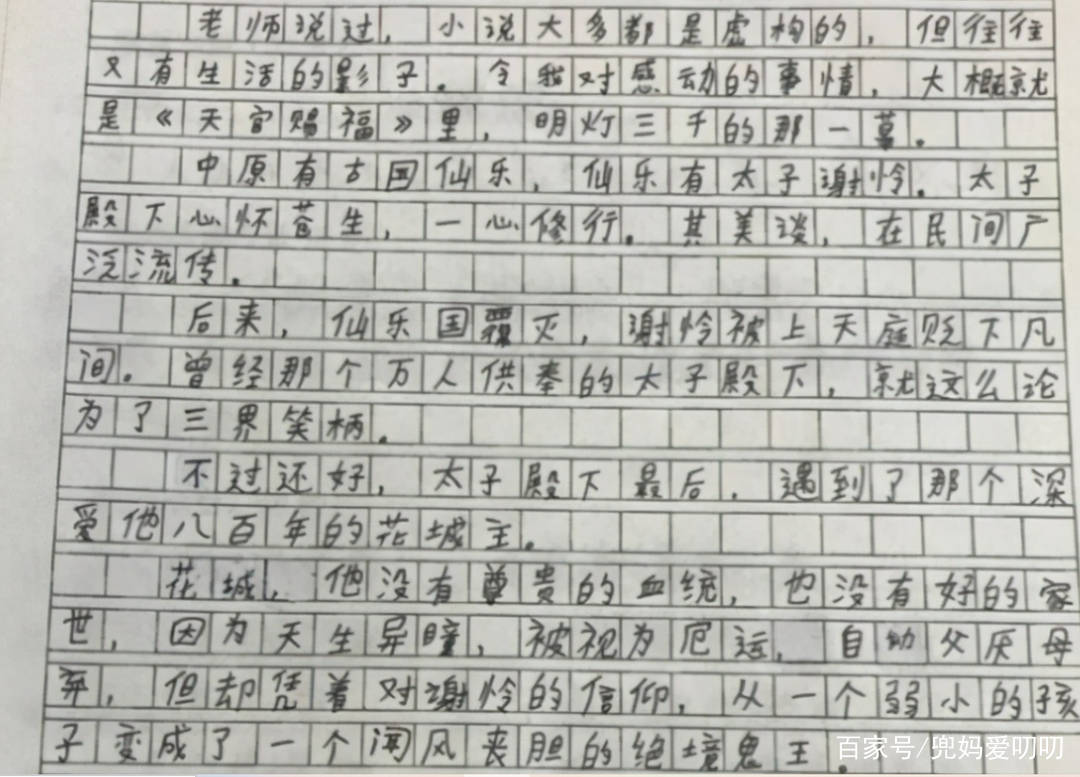 老师说过，小说大多都是虚构的，但往往
又有生活的影子。令我对感动的事情，大概就
是《天官赐福》里，明灯三千的那一幕。
中原有古国仙乐，仙乐有太子谢怜。太子
殿下心怀苍生，一心修行。其美谈，在民间广
泛流传。
后来，仙乐国覆灭，谢怜被上天庭贬下凡
间。曾经那个万人供奉的太子殿下，就这么论
为了三界笑柄。
不过还好，太子殿下最后，遇到了那个深
爱他八百年的花城主。
花城，他没有尊贵的血统，也没有好的家
世，因为天生异瞳，被视为厄运，自幼父厌母
弃，但却凭着对谢怜的信仰，从一个弱小的孩
子变成了一个闻风丧胆的绝境鬼王。
百家号/兜妈爱叨叨